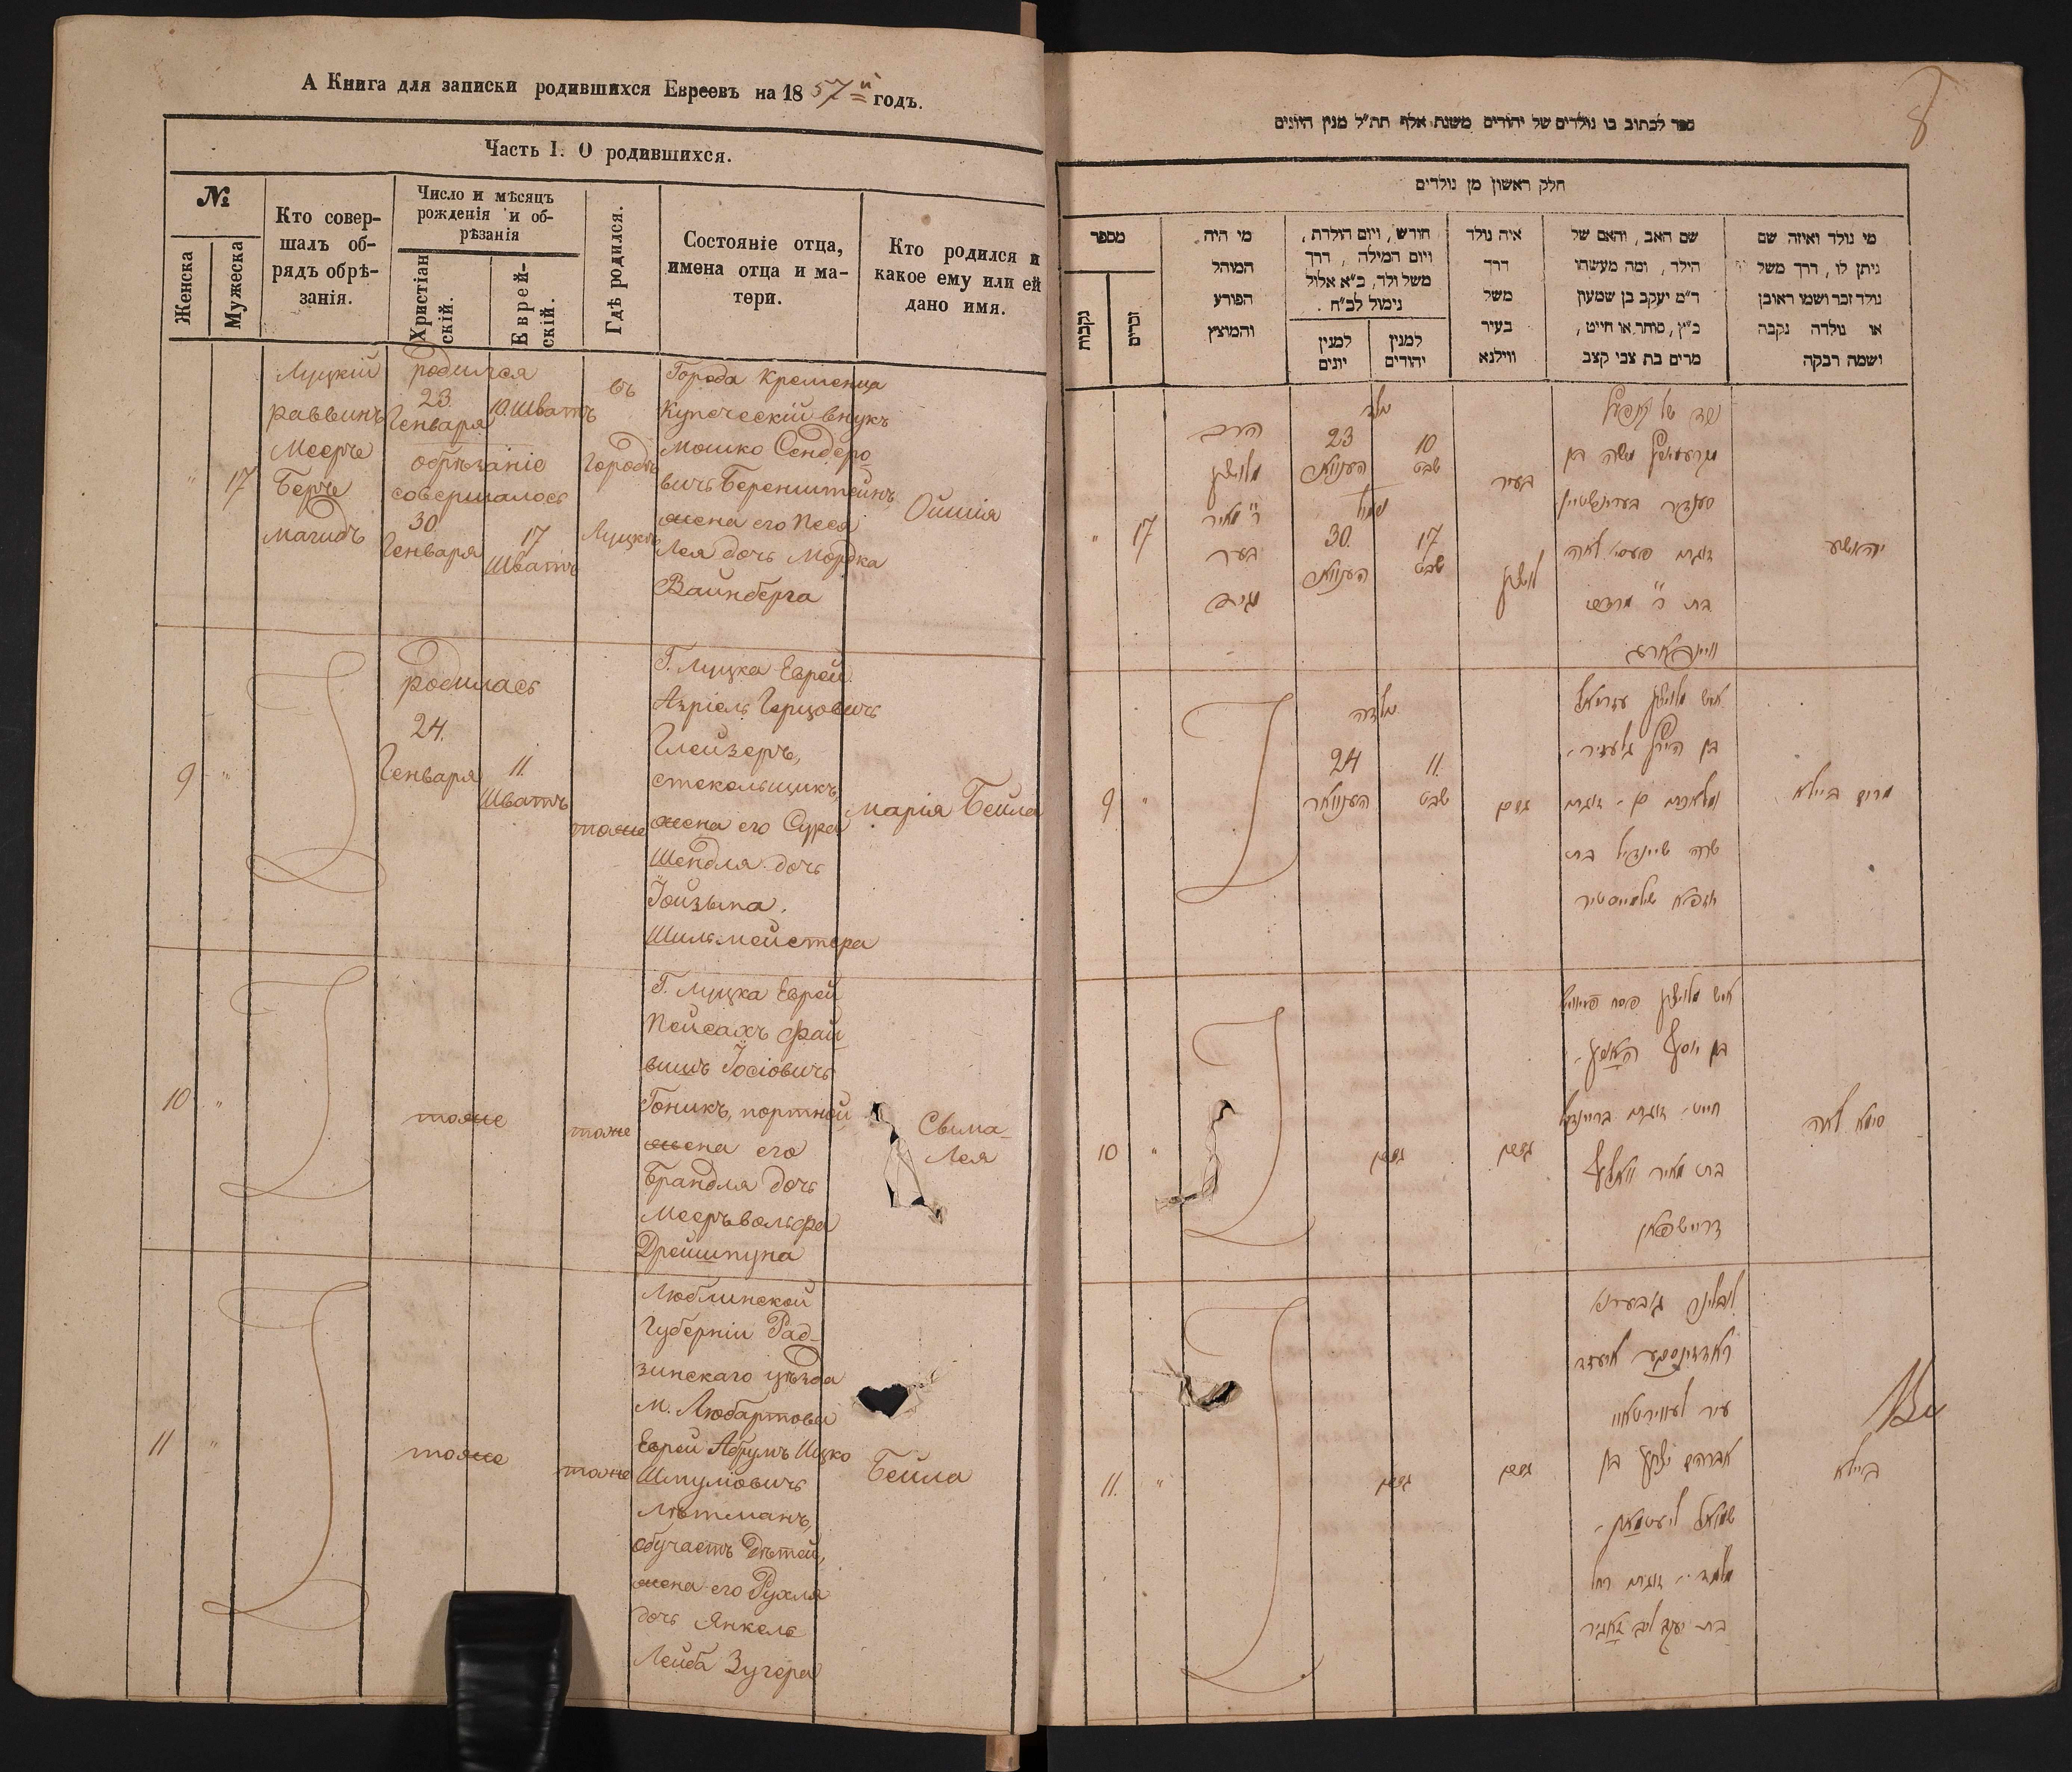 А Книга для записки родившихся Евреевъ на 1857й годъ.
Часть I. О родившихся.
№
Женска
Мужеска
Кто совер-
шалъ об-
рядъ обрѣ-
занія.
Число и мѣсяцъ
рожденія и об-
рѣзанія
Христіан
скій.
Еврей-
скій.
Гдѣ родился.
Состояніе отца,
имена отца и ма-
тери.
Кто родился и
какое ему или ей
дано имя.
"
17
Луцкій
раввинъ
Меерче
Берче
магидъ
родился
23.
Генваря
10. Шватъ
обрѣзаніе
совершалось
30
Генваря
17
Шватъ
въ
Городѣ
Луцкѣ
Города Кременца
Купеческій внукъ
Мошко Сендеро
вичъ Беренштейнъ
жена его Песя
Лея дочь Мордка
Вайнберга
Ошия
9
"
родилась
24.
Генваря
11.
Шватъ
тоже
Г. Луцка Еврей
Азріель Герцовичъ
Глейзеръ,
стекольщикъ,
жена его Сура
Шендля дочь
Іойзыпа.
Шильмейстера
Марія Бейла
10
"
тоже
тоже
Г. Луцка Еврей
Пейсахъ Фай
вишъ Іосіовичъ
Гоникъ, портной
жена его
Брандля дочь
Мееръ вольфа
Дрейшпуна
Сыма-
Лея
11
"
тоже
тоже
Люблинской
Губерніи Рад-
зинскаго уѣзда
М. Любартова
Еврей Абрумъ Ицко
Шмулiовичъ
Лѣтманъ,
обучаетъ дѣтей,
жена его Рухля
дочь Янкель
Лейба Зугера
Бейла
8
ספר לכתוב בו נולדים של יהודים משנת אלף תת"ל מנין היונים
חלק ראשון מן נולדים
מספר
נקבות
זכרים
מי היה
המוהל
הפורע
והמוצץ
חודש, ויום הולדת,
ויום המילה, דרך
משל ולד, כ"א אלול
נימול לכ"ח.
למנין
יונים
למנין
יהודים
איה נולד
דרך
משל
בעיר
ווילנא
שם האב, והאם של
הילד, ומה מעשהו
ד"מ יעקב בן שמעון
כ"ץ, סוחר או חייט,
מרים בת צבי קצב
מי נולד ואיזה שם
ניתן לו, דרך משל
נולד זכר ושמו ראובן
או נולדה נקבה
ושמה רבקה
"
17
הרב
מלוצק
ר' מאיר
בער
מגיד
נולד
23
הענוואר
10
שבט
נימול
30.
הענוואר
17
שבט
בעיר
לוצק
משה בן
סענדיר בערינשטיין
זוגתו פעסי לאה
בת ר' מרדכי
וויינבארג
יהאשע
9
"
נולדה
24
הענוואר
11.
שבט
גם
איש מלוצק עזריאל
בן הירץ גלעזיר
זוגתו
שרה שיינדיל בת
יוזפא שילמייסטיר
מרים ביילא
10
"
איש מלוצק פסח פייוויש
בן יוסף האניק
חייט, זוגתו בריינדל
בת מאיר וואלף
דריישפאן
סימא לאה
11.
"
לובלינר גובערניע
עיר לעווירטאוו
אברהם יצחק בן
שמואל ליטמאן
מלמד, זוגתו רחל
בת יעקב ליב
ביילא